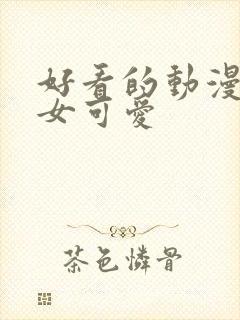 好看的動漫
女可愛
茶色憐骨